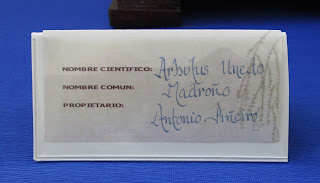 NOMBRE CIENTIFICO: Arbutus Unedo
NOMBRE COMUN: Madroño
PROPIETARIO: Antonio Piñeiro